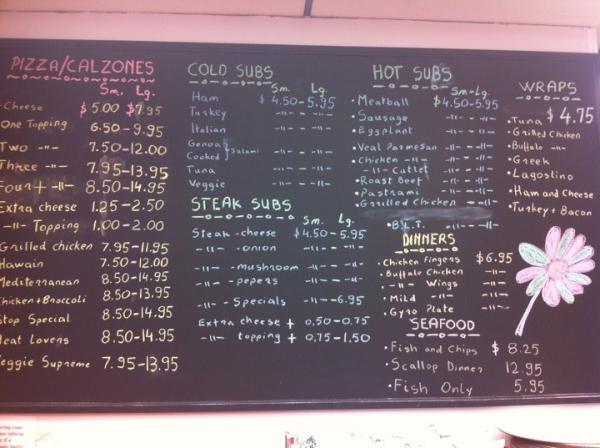 PIZZA/CALZONES
Sm. Lg.
Cheese $5.00 $7.95
One Topping 6.50-9.95
Two -11- 7.50-12.00
Three -11- 7.95-13.95
Four+ -11- 8.50-14.95
Extra cheese 1.25-2.50
-11- Topping 1.00-2.00
Grilled chicken 7.95-11.95
Hawain 7.50-12.00
Mediterranean 8.50-14.95
Chicken+Broccoli 8.50-13.95
Stop Special 8.50-14.95
Meat Lovers 8.50-14.95
Veggie Supreme 7.95-13.95
COLD SUBS
Sm. Lg.
Ham $4.50-5.95
Turkey -11- -11-
Italian -11- -11-
Genoa
Cooked } Salami -11- -11-
Tuna -11- -11-
Veggie -11- -11-
STEAK SUBS
Sm. Lg.
Steak-cheese $4.50-5.95
-11- -onion -11- -11-
-11- -mushroom -11- -11-
-11- -pepers -11- -11-
-11- -Specials -11- -6.95
Extra cheese + 0.50-0.75
-11- topping + 0.75-1.50
HOT SUBS
Sm-Lg.
•Meatball $4.50-5.95
•Sausage -11- -11-
•Eggplant -11- -11-
•Veal Parmesan -11- -11-
•Chicken -11- -11- -11-
-11- -Cutlet -11- -11-
•Roast Beef -11- -11-
•Pastrami -11- -11-
•Grilled Chicken -11- -11-
•B.L.T. -11- -11-
DINNERS
•Chicken Fingers $6.95
•Buffalo Chicken -11-
•-11- Wings -11-
•Mild -11- -11-
•Gyro Plate -11-
SEAFOOD
•Fish and Chips $8.25
•Scallop Dinner 12.95
•Fish Only 5.95
WRAPS
$4.75
•Tuna
•Grilled Chicken
•Buffalo -11-
•Greek
•Lagostino
•Ham and Cheese
•Turkey+Bacon